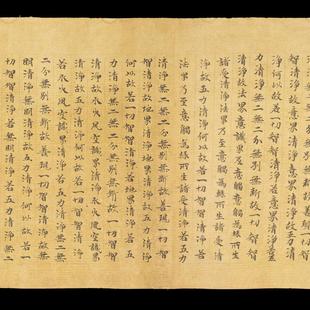 智清淨故意界清淨意界清淨故五力清
淨何以故若一切智智清淨若意界清淨若五
力清淨無二無二分無別無斷故一切智智
清淨故法界意識界及意觸意觸為緣所生
諸受清淨法界乃至意觸為緣所生諸受清
淨故五力清淨何以故若一切智智清淨若
法界乃至意觸為緣所生諸受清淨若五力
清淨無二無二分無別無斷故善現一切智
智清淨故地界清淨地界清淨故五力清淨
何以故若一切智智清淨若地界清淨若五
力清淨無二無二分無別無斷故一切智智
清淨故水火風空識界清淨水火風空識界清
淨故五力清淨何以故若一切智智清淨
若水火風空識界清淨若五力清淨無二無
二分無別無斷故善現一切智智清淨故無
明清淨無明清淨故五力清淨何以故若一
切智智清淨若無明清淨若五力清淨無二